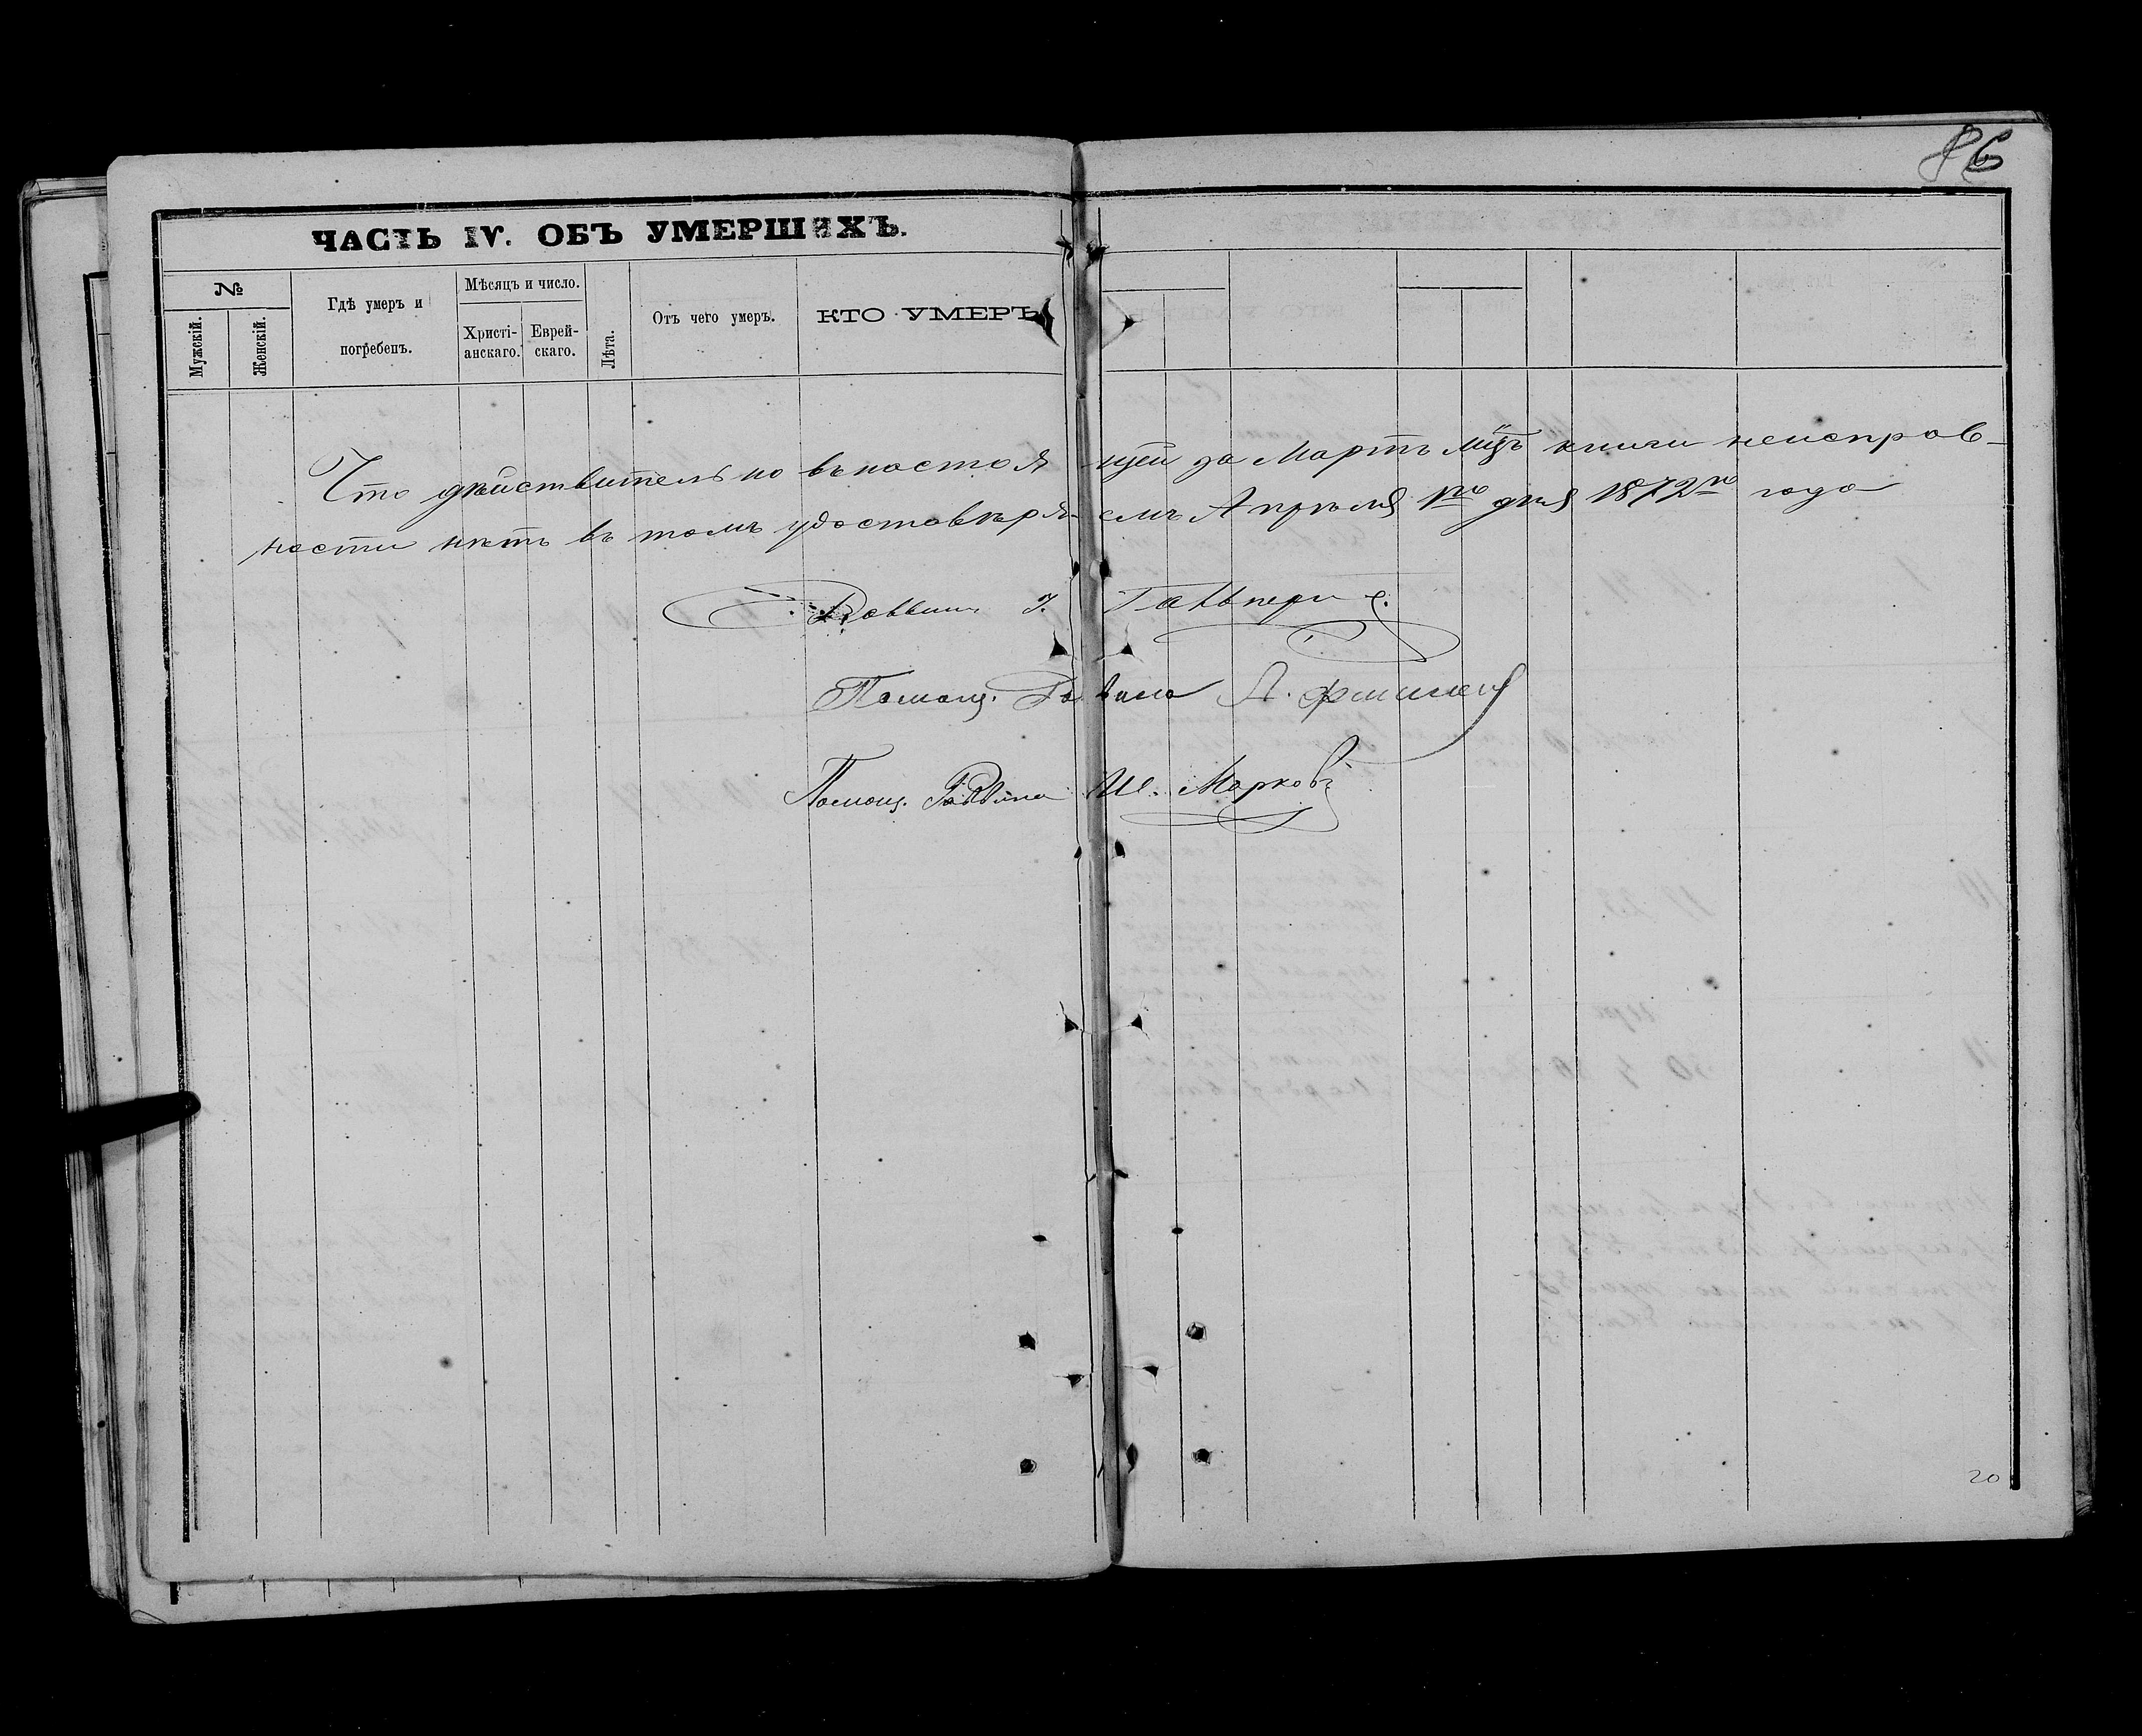 86
ЧАСТЬ IV. ОБЪ УМЕРШИХЪ.
№
Мужскій.
Женскій.
Гдѣ умеръ и
погребенъ.
Мѣсяцъ и число.
Христі-
анскаго.
Еврей-
скаго.
Лѣта.
Отъ чего умеръ.
КТО УМЕРЪ
Что дѣйствительно въ настоящей за Мартъ мцъ книги неисправ-
ности нѣтъ въ томъ удостовѣряемъ Апрѣля 1го дня 1872го года
Раввинъ Г. Гальперн
Помощ. Раввина А.
Помощ. Раввина Ш. Марковъ
20